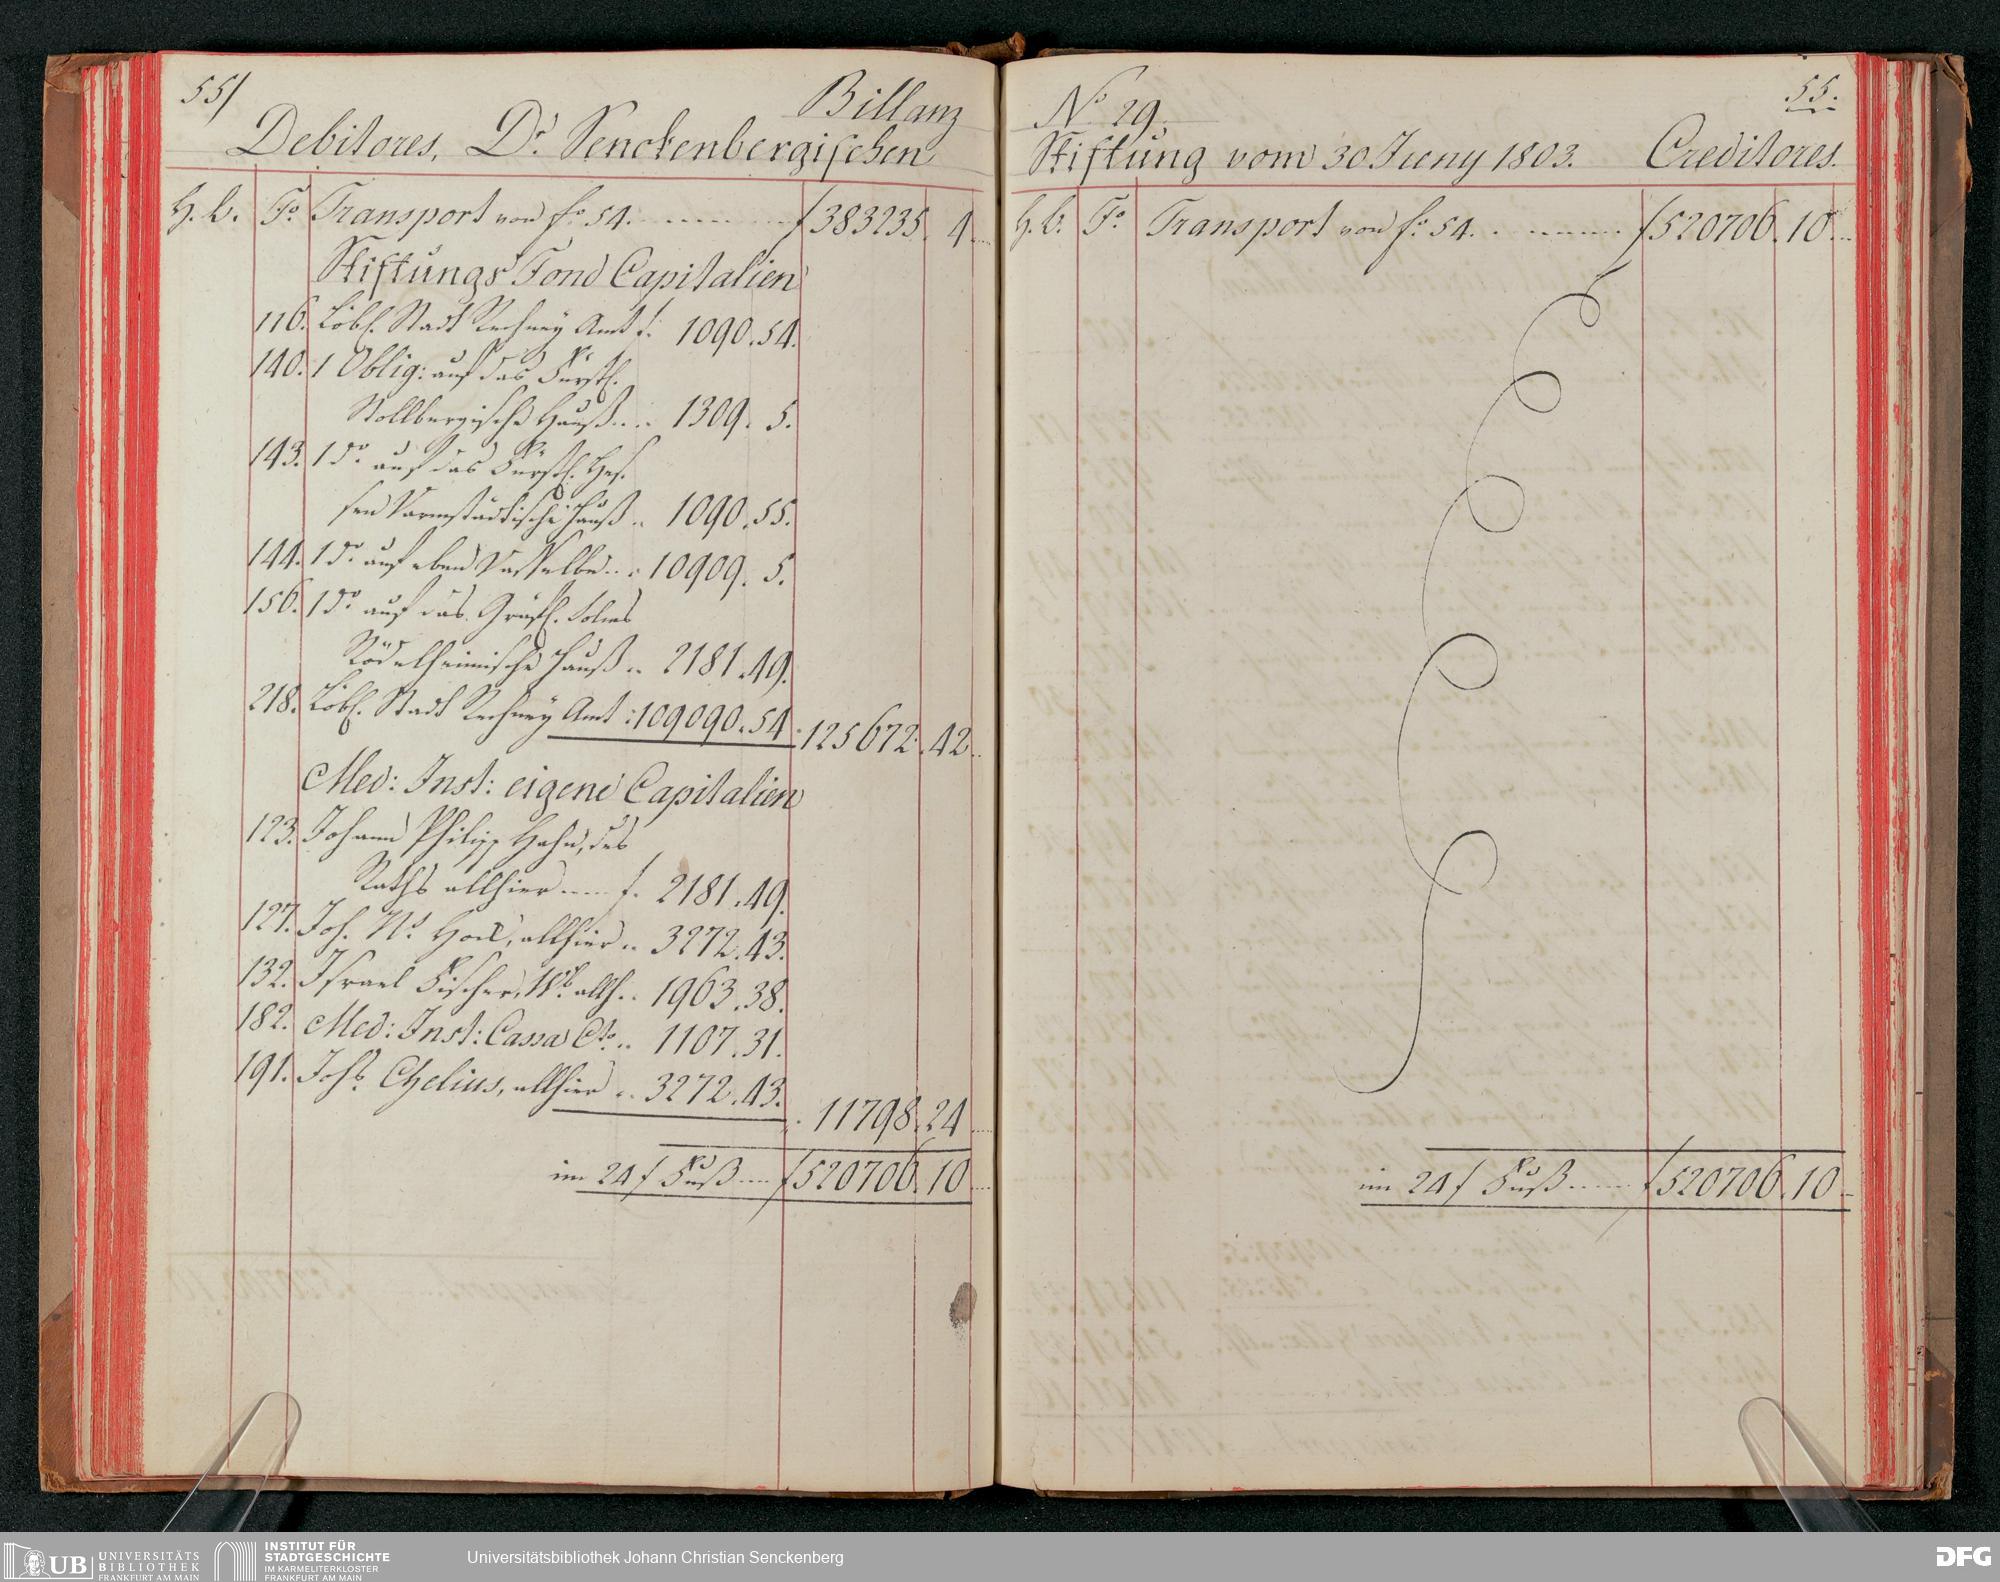 55/
Billanz
Debitores, Dr. Senckenbergischen
H. b. Fo. Transport von fo. 54. f 383235. 4
Stiftungs Fond Capitalien
116. Löbl. Stadt Rechney Amt f. 1090.54.
140. 1 Oblig: auf das Fürstl.
Stollbergische Hauß 1309. 5.
143. 1 do. auf das Fürstl. Hes-
sen Darmstädtische Hauß 1090.55.
144. 1 do. auf eben dasselbe 10909. 5.
156. 1 do. auf das Gräfl. Solms
Rödelheimische Hauß 2181.49.
218. Löbl. Stadt Rechney Amt 109090.54. 125672.42
Med: Inst: eigene Capitalien
123. Johann Philipp Hahn, des
Raths allhier f. 2181.49.
127. Joh. allhier 3272.43.
132. Israel Fischer, Wb. allh. 1963.38.
182. Med: Inst: Cassa Cto. 1107.31.
191. Johs. Chelius, allhier 3272.43.
11798.24
im 24 f Fuß f 520706.10
55.
No. 29.
Stiftung vom 30 Juny 1803. Creditores.
H. b. Fo. Transport von fo. 54. f 520706.10
im 24 f Fuß f 520706.10
UB UNIVERSITÄTS
BIBLIOTHEK
FRANKFURT AM MAIN
INSTITUT FÜR
STADTGESCHICHTE
IM KARMELITERKLOSTER
FRANKFURT AM MAIN
Universitätsbibliothek Johann Christian Senckenberg
DFG